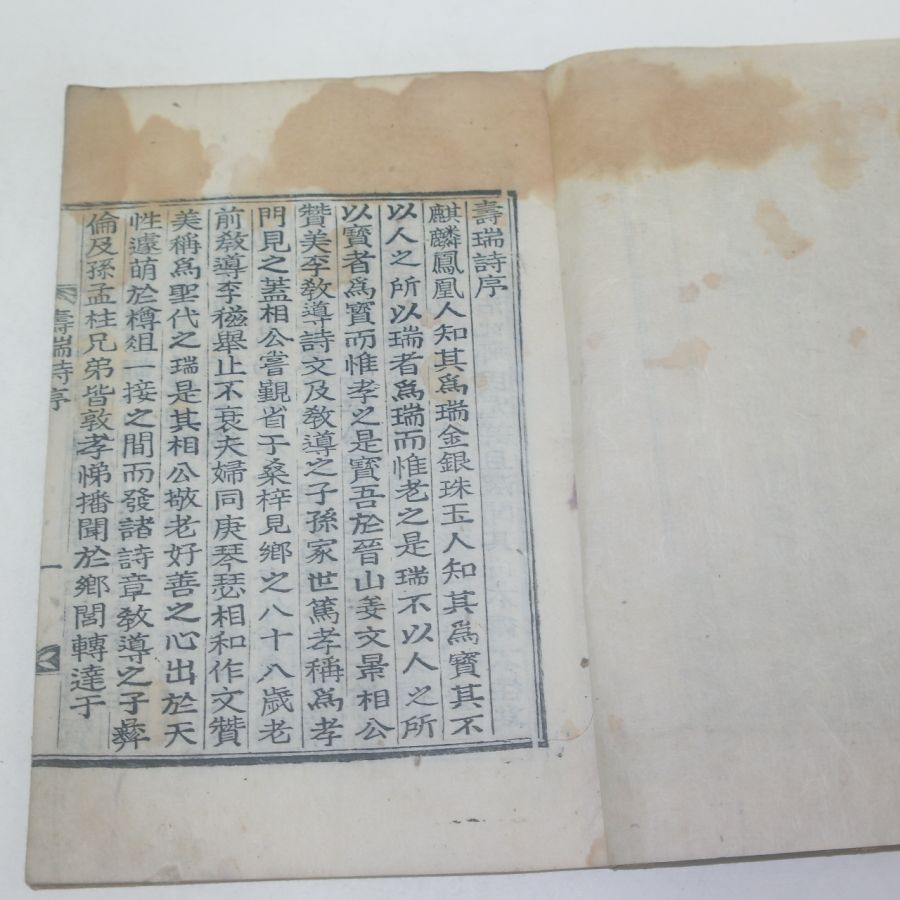 壽瑞詩序
麒麟鳳凰人知其爲瑞金銀珠玉人知其爲寶其不
以人之所以瑞者爲瑞而惟老之是瑞不以人之所
以寶者爲寶而惟孝之是寶吾於晉山姜文景相公
贊美李敎導詩文及敎導之子孫家世篤孝稱爲孝
門見之蓋相公嘗覲省于桑梓見鄕之八十八歲老
前敎導李𥠖擧止不衰夫婦同庚琴瑟相和作文贊
美稱爲聖代之瑞是其相公敬老好善之心出於天
性遽萌於樽俎一接之間而發諸詩章敎導之子彝
倫及孫孟柱兄弟皆敦孝悌播聞於鄕閭轉達于
壽瑞詩序
一